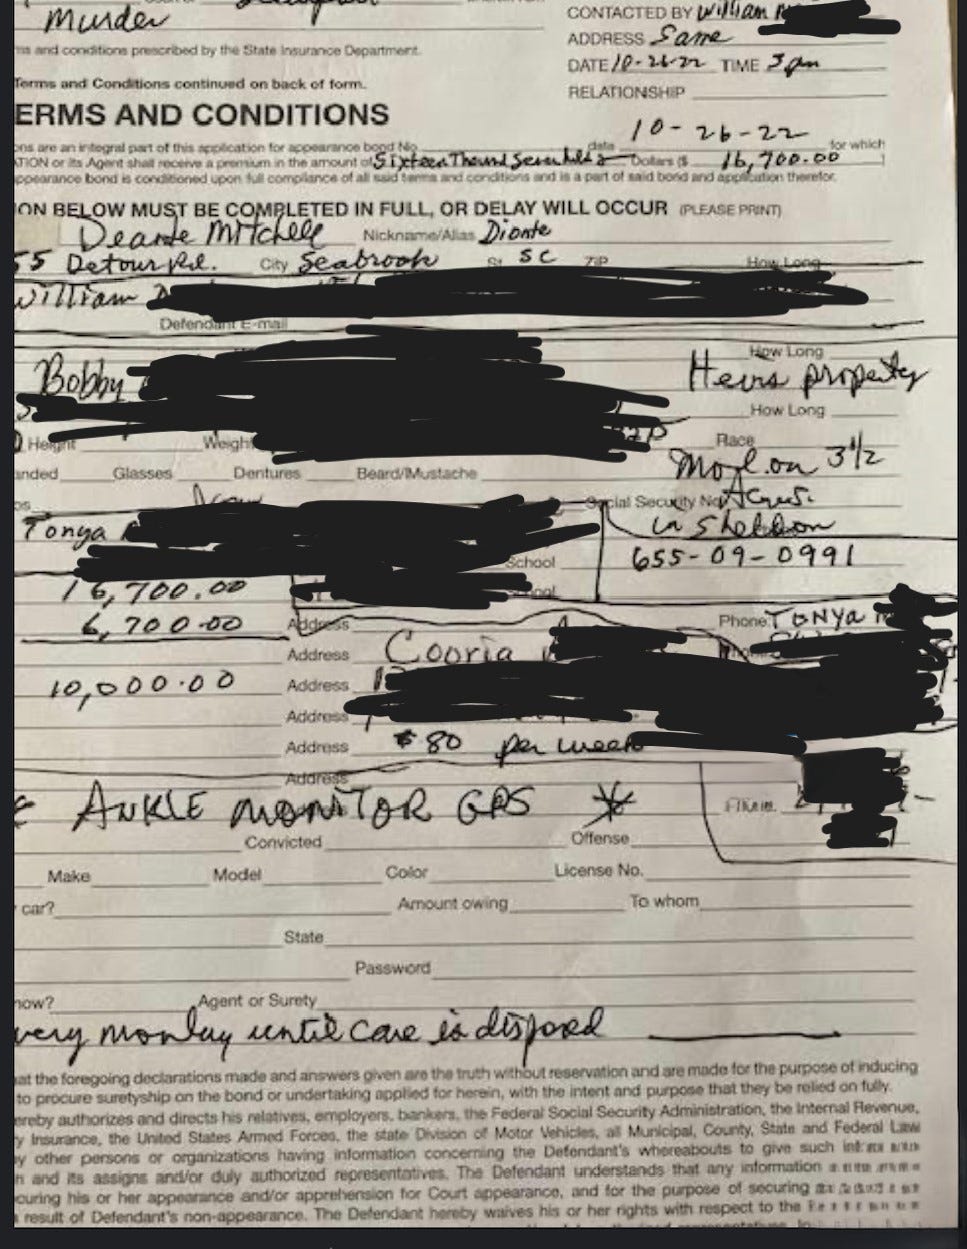 Murder
CONTACTED BY William
ms and conditions prescribed by the State Insurance Department.
ADDRESS Same
DATE 10-26-22 TIME 3pm
Terms and Conditions continued on back of form.
RELATIONSHIP
ERMS AND CONDITIONS
ons are an integral part of this application for appearance bond No. date 10-26-22 for which
ATION or its Agent shall receive a premium in the amount of Sixteen Dollars ($ 16,700.00 )
appearance bond is conditioned upon full compliance of all said terms and conditions and is a part of said bond and application therefor.
ON BELOW MUST BE COMPLETED IN FULL, OR DELAY WILL OCCUR (PLEASE PRINT)
Mitchell Nickname/Alias Dionte
55 Detour Rd. City Seabrook St SC ZIP How Long
William
Defendant E-mail
How Long
Bobby Heirs property
How Long
Height Weight Race
anded Glasses Dentures Beard/Mustache
on 3 1/2
Social Security No. Acres.
Tonya in Sheldon
School [SSN omitted]
16,700.00
6,700.00 Address Phone: TONYA
Address Cooria
10,000.00 Address
Address
Address $80 per week
Address
ANKLE MONITOR GPS *
Convicted Offense
Make Model Color License No.
car? Amount owing To whom
State
Password
how? Agent or Surety
very monday until case is disposed
at the foregoing declarations made and answers given are the truth without reservation and are made for the purpose of inducing
to procure suretyship on the bond or undertaking applied for herein, with the intent and purpose that they be relied on fully.
ereby authorizes and directs his relatives, employers, bankers, the Federal Social Security Administration, the Internal Revenue,
y Insurance, the United States Armed Forces, the state Division of Motor Vehicles, all Municipal, County, State and Federal Law
y other persons or organizations having information concerning the Defendant's whereabouts to give such
n and its assigns and/or duly authorized representatives. The Defendant understands that any information
curing his or her appearance and/or apprehension for Court appearance, and for the purpose of securing
result of Defendant's non-appearance. The Defendant hereby waives his or her rights with respect to the